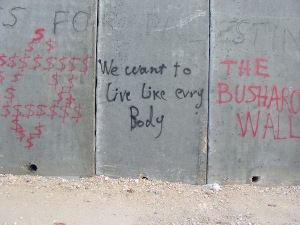 S FOR PALESTIN
$
$$$$$$$
$ $ $
$ $
$$$$$$$
$ $ $
$$$
$
We want to
Live Like evry
Body
THE
BUSHARO
WALL